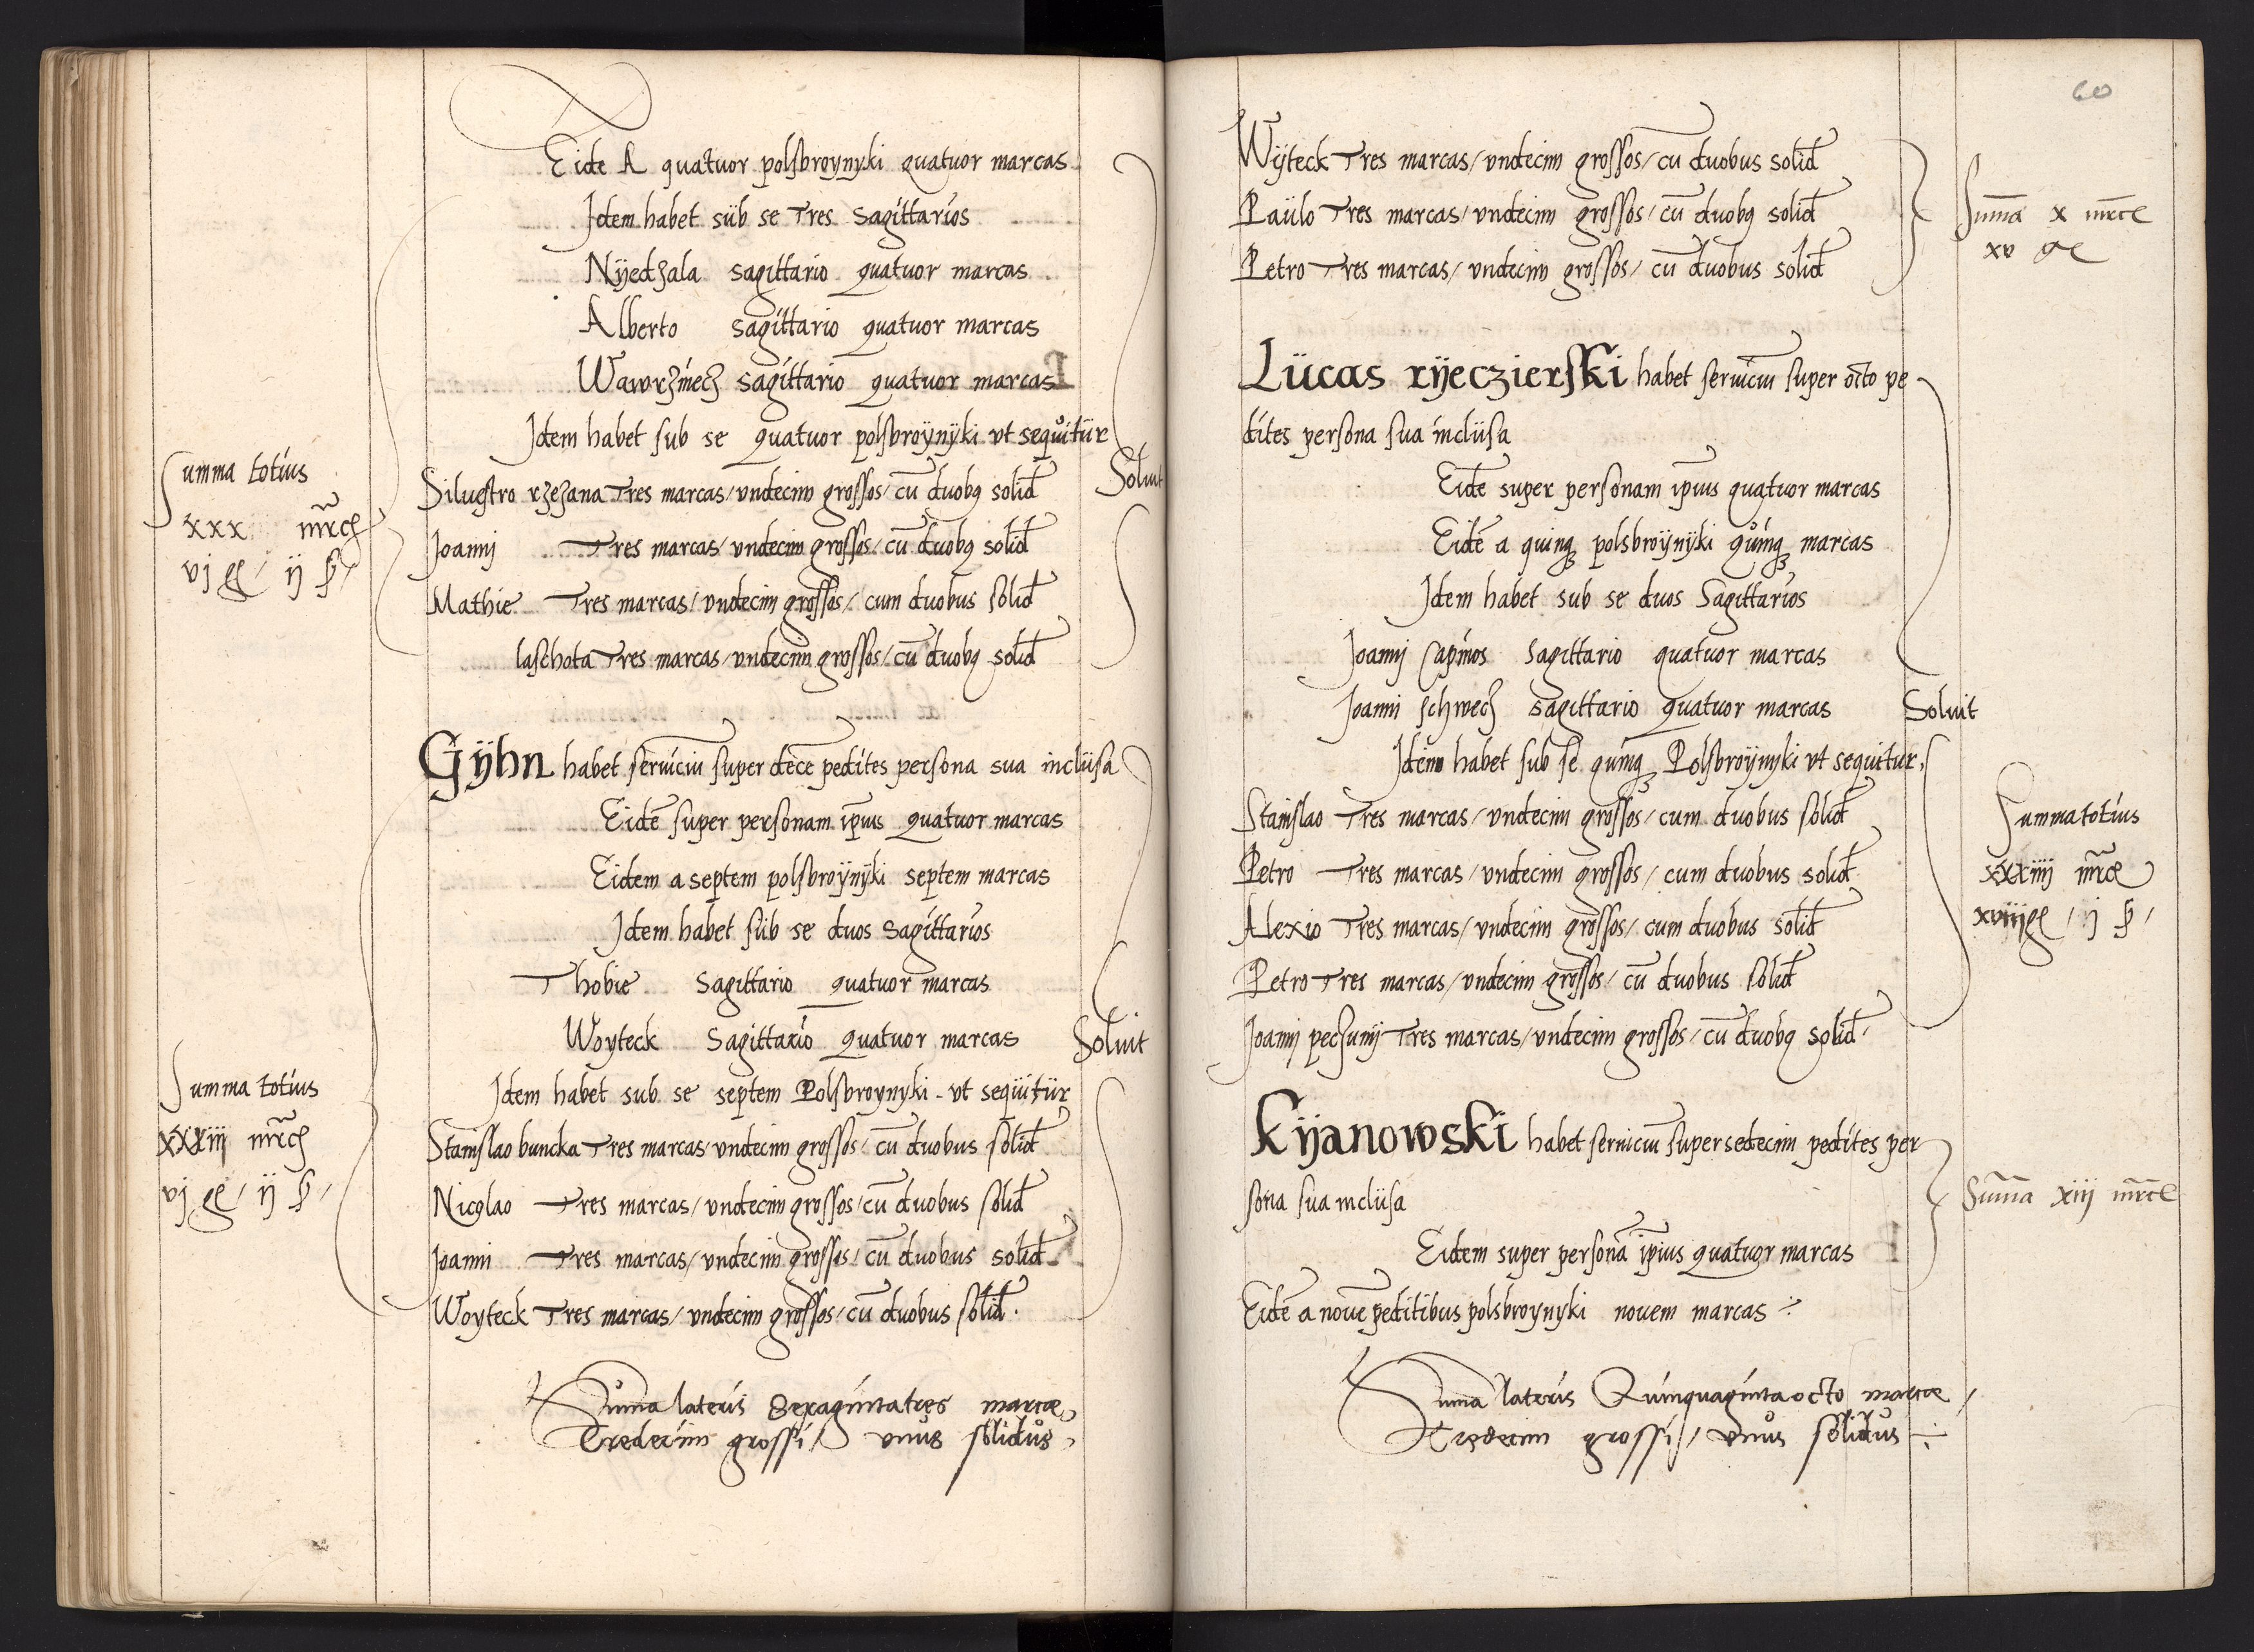 Eide A quatuor polsbroynyki quatuor marcas
Idem habet süb se Tres Sagittarios
Nÿedzala sagittario quatuor marcas
Alberto sagittario quatuor marcas
Wawrzinecz sagittario quatuor marcas
Idem habet sub se quatuor polsbroÿnÿki vt sequitür
Siluestro rzezana Tres marcas / vndecim grossos / cū duobꝫ solid
Joanni Tres marcas / vndecim grossos / cū duobꝫ solid
Mathie Tres marcas / vndecim grossos / cum duobus solid
laschota Tres marcas / vndecim grossos / cū duobꝫ solid
Soluit
Summa totius
xxx mrc
vj g / ij ꝭ /
Gÿhn habet seruiciū super dece pedites persona sua inclüsa
Eidē super personam ip̄ius quatuor marcas
Eidem a septem polsbroÿnÿki septem marcas
Idem habet süb se duos Sagittarios
Thobie Sagittario quatuor marcas
Woyteck Sagittario quatuor marcas
Soluit
Idem habet sub se septem Polsbroynyki vt seqüitür
Stanislao buncka Tres marcas / vndecim grossos / cū duobus solid
Nicolao Tres marcas / vndecim grossos / cū duobus solid
Joanni Tres marcas / vndecim grossos / cū duobus solid
Woyteck Tres marcas / vndecim grossos / cū duobus solid
Summa totius
xxxiij mrc
vj g / ij ꝭ /
Suma lateris Sexagintatres marcæ
Tredecim grossi / vnus solidus
60
Wÿteck Tres marcas / vndecim grossos / cū duobus solid
Paülo Tres marcas / vndecim grossos / cū duobꝫ solid
Petro Tres marcas / vndecim grossos / cū duobus solid
Sūma x mrc
xv g
Lücas rÿeczierski habet seruiciū super octo pe
dites persona sua inclüsa
Eidē super personam ip̄ius quatuor marcas
Eidē a quinqꝫ polsbroÿnyki quinqꝫ marcas
Idem habet sub se duos Sagittarios
Joanni Capinos Sagittario quatuor marcas
Joanni schwecz sagittario quatuor marcas
Soluit
Idem habet sub se quinqꝫ Polsbroÿnyki vt sequitur
Stanislao Tres marcas / vndecim grossos / cum duobus solid
Petro Tres marcas / vndecim grossos / cum duobus solid
Alexio Tres marcas / vndecim grossos / cum duobus solid
Petro Tres marcas / vndecim grossos / cū duobus solid
Joanni peczunij Tres marcas / vndecim grossos / cū duobꝫ solid
Summa totius
xxxiiij mrc
xviij g / ij ꝭ /
Kÿanowski habet seruiciū super sedecim pedites per
sona sua inclüsa
Eidem super personā ip̄ius quatuor marcas
Eidē a nouē peditibus polsbroynyki nouem marcas
Sūma xiij mrc
Suma lateris Quinquaginta octo marcæ
Tredecim grossi / vnus solidus